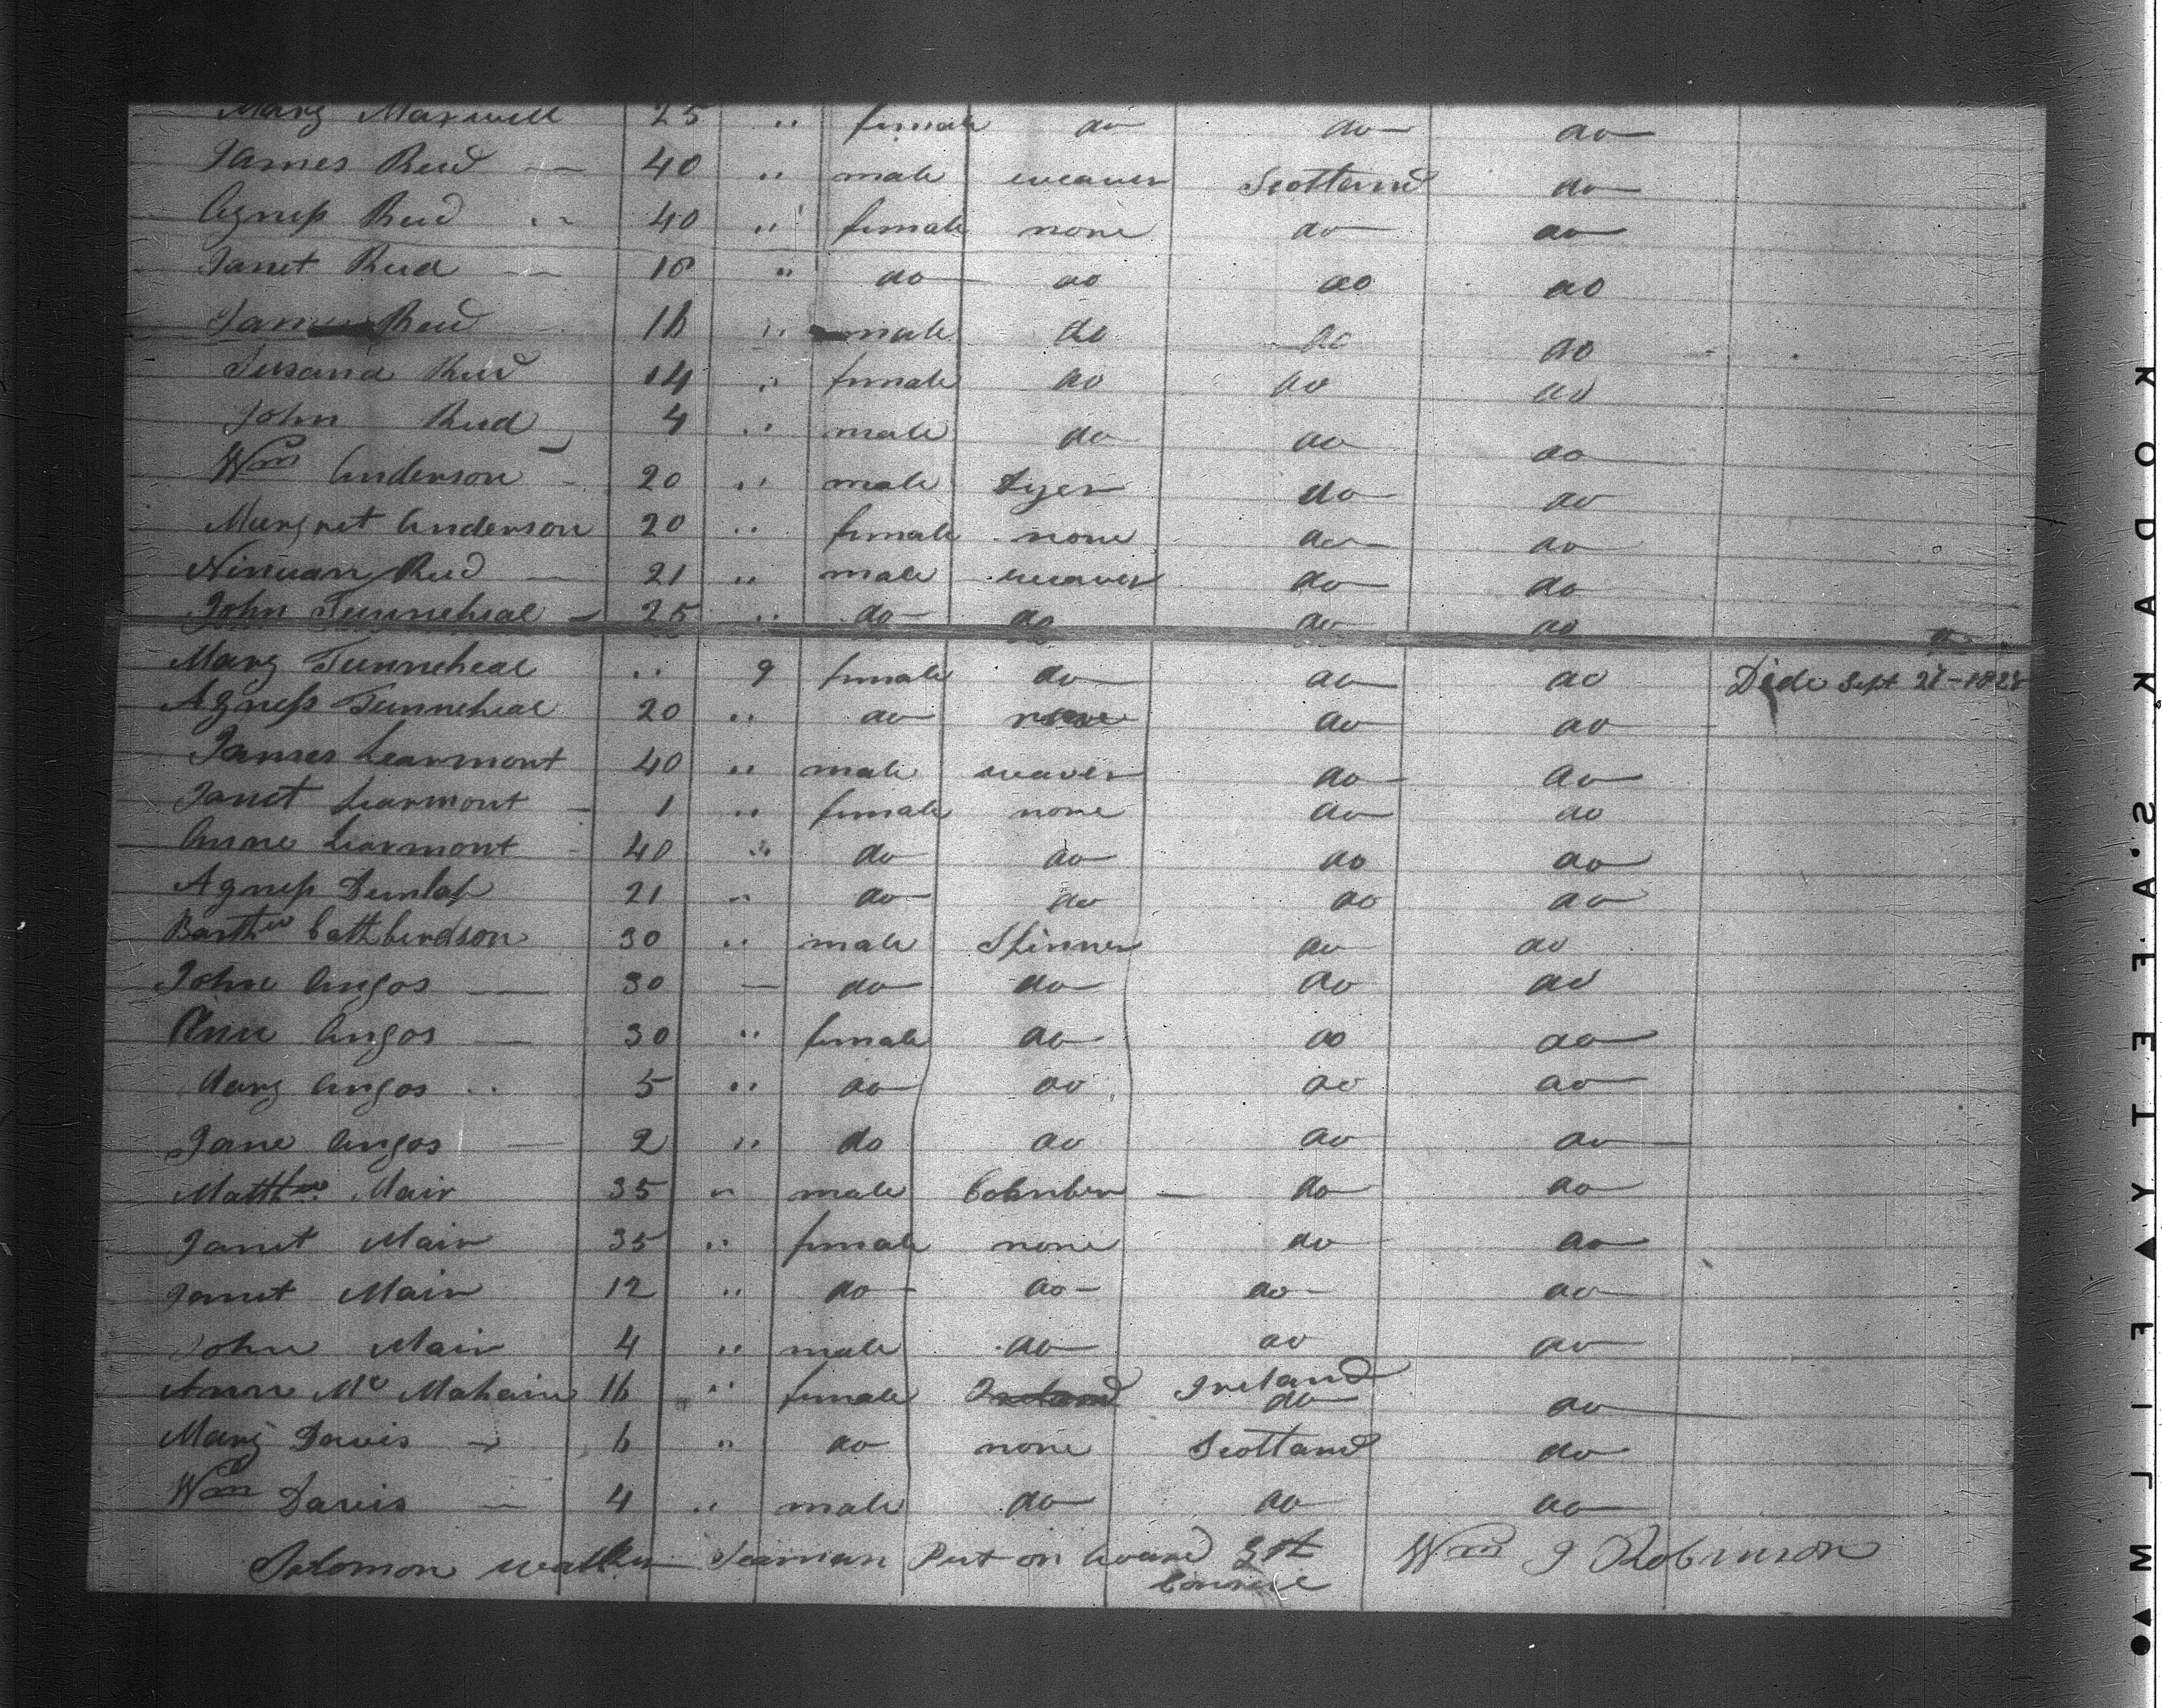 Mary Maxwell 25 " female do do do
James Reid — 40 " male weaver Scotland do
Agness Reid 40 " female none do do
Janet Reid — 18 " do do do do
Reid 16 " male do do do
Susana Reid 14 " female do do do
John Reid 4 " male do do do
Wm Anderson - 20 " male Dyer do do
Margret Anderson 20 " female none do do
Ninian Reid — 21 " male weaver do do
John Tunneheal - 25 " do do do do
Mary Tunneheal " 9 female do do do Dide Sept 21 - 1828
Agness Tunneheal 20 " do none do do
James Learmont 40 " male weaver do do
Janet Learmont - 1 " female none do do
Anne Learmont - 40 " do do do do
Agness Dunlap 21 " do do do do
Barthw Cathberdson 30 " male Spinner do do
John Angos — 30 — do do do do
Ann Angos — 30 " female do do do
Mary Angos 5 " do do do do
Jane Angos — 2 " do do do do
Matthw Mair 35 " male — do do
Janet Mair 35 " female none do do
Janet Mair 12 " do do do do
John Mair 4 " male do do do
Ann Mc Mahain 16 " female Ireland Ireland do do
Mary Davis - 6 " do none Scotland do
Wm Davis — 4 " male do do do
Solomon walker Seaman Put on board Wm J Robinson
KODAK · SAFETY ▲ FILM ▲●